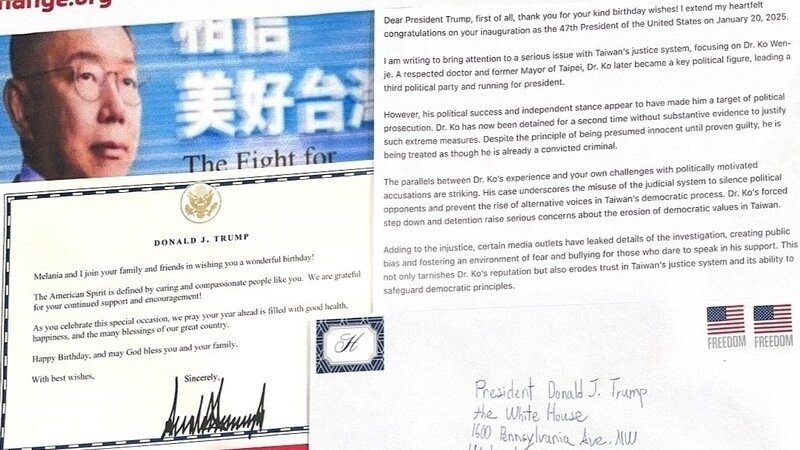 ange.org
相信
美好台灣
The Fight for
DONALD J. TRUMP
Melania and I join your family and friends in wishing you a wonderful birthday!
The American Spirit is defined by caring and compassionate people like you. We are grateful
for your continued support and encouragement!
As you celebrate this special occasion, we pray your year ahead is filled with good health,
happiness, and the many blessings of our great country.
Happy Birthday, and may God bless you and your family.
With best wishes,
Sincerely,
Dear President Trump, first of all, thank you for your kind birthday wishes! I extend my heartfelt
congratulations on your inauguration as the 47th President of the United States on January 20, 2025.
I am writing to bring attention to a serious issue with Taiwan's justice system, focusing on Dr. Ko Wen-
je. A respected doctor and former Mayor of Taipei, Dr. Ko later became a key political figure, leading a
third political party and running for president.
However, his political success and independent stance appear to have made him a target of political
prosecution. Dr. Ko has now been detained for a second time without substantive evidence to justify
such extreme measures. Despite the principle of being presumed innocent until proven guilty, he is
being treated as though he is already a convicted criminal.
The parallels between Dr. Ko's experience and your own challenges with politically motivated
accusations are striking. His case underscores the misuse of the judicial system to silence political
opponents and prevent the rise of alternative voices in Taiwan's democratic process. Dr. Ko's forced
step down and detention raise serious concerns about the erosion of democratic values in Taiwan.
Adding to the injustice, certain media outlets have leaked details of the investigation, creating public
bias and fostering an environment of fear and bullying for those who dare to speak in his support. This
not only tarnishes Dr. Ko's reputation but also erodes trust in Taiwan's justice system and its ability to
safeguard democratic principles.
H
FREEDOM FREEDOM
President Donald J. Trump
the White House
1600 Pennsylvania Ave. NW